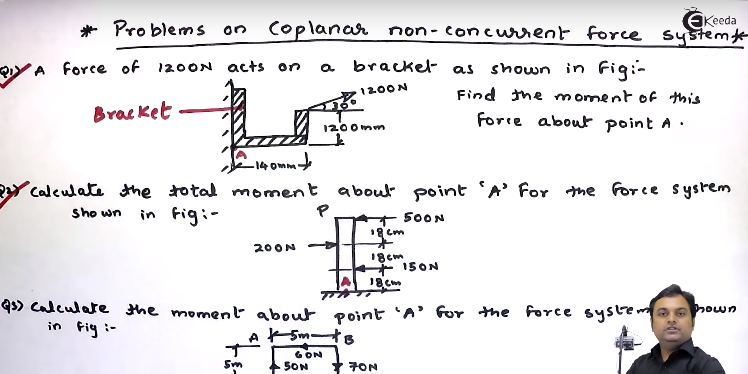 * Problems on Coplanar non-concurrent force system *
Ekeeda
Q1) A Force of 1200N acts on a bracket as shown in fig:-
1200N
30°
Find the moment of this
Bracket
1200mm
force about point A.
A
140mm
Q2) Calculate the total moment about point 'A' for the force system
shown in fig:-
P
500N
18cm
200N
18cm
150N
A
18cm
Q3) Calculate the moment about point 'A' for the force system shown
in fig:-
A
5m
B
60N
5m
50N
70N